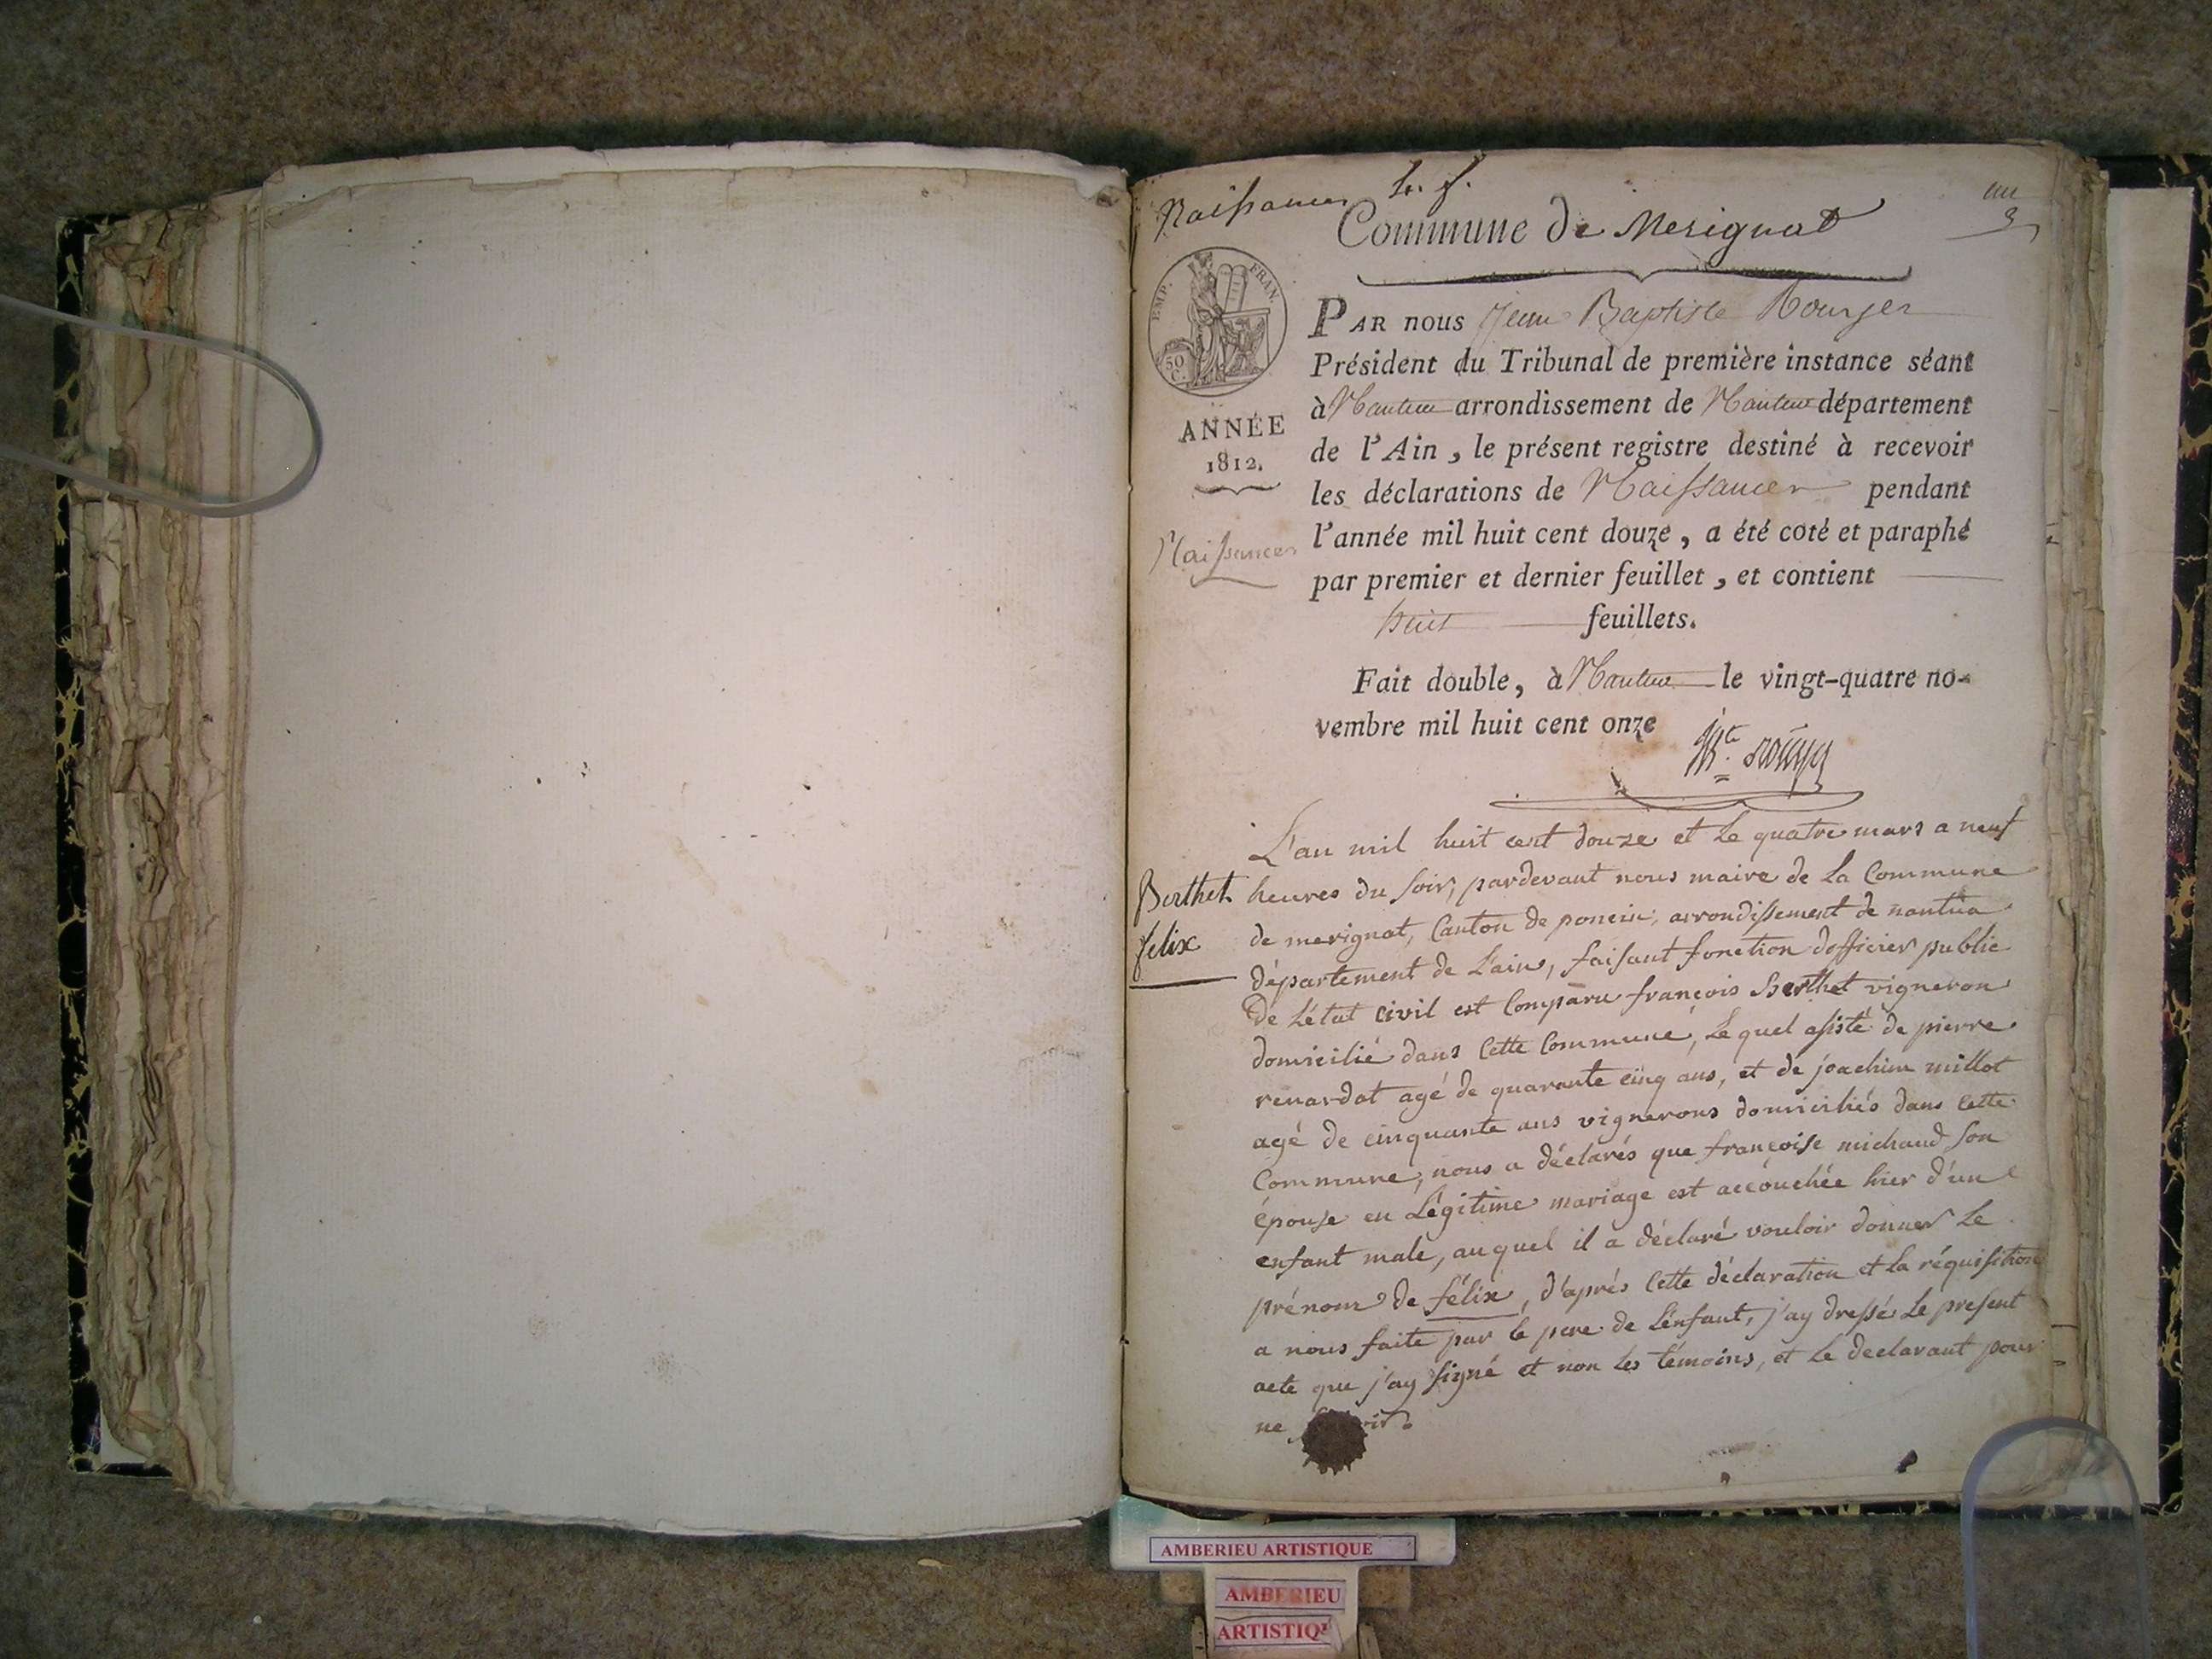 Naissances
un
Commune de Merignat
EMP. FRAN.
50 C.
PAR nous Jean Baptiste Rouyer
Président du Tribunal de première instance séant
à Nantua arrondissement de Nantua département
ANNÉE
1812.
de l'Ain, le présent registre destiné à recevoir
les déclarations de Naissances pendant
Naissances
l'année mil huit cent douze, a été coté et paraphé
par premier et dernier feuillet, et contient
huit feuillets.
Fait double, à Nantua le vingt-quatre no-
vembre mil huit cent onze
L'an mil huit cent douze et le quatre mars a neuf
Berthet
felix
heures du soir, pardevant nous maire de la Commune
de merignat, Canton de poncin, arrondissement de nantua
département de L'ain, faisant fonction dofficier public
de L'état civil est Comparu françois Berthet vigneron
domicilié dans Cette Commune, Le quel assisté de pierre
renardat agé de quarante cinq ans, et de joachim millot
agé de cinquante ans vignerons domiciliés dans Cette
Commune, nous a déclarés que françoise michaud son
épouse en Légitime mariage est accouchée hier d'un
enfant male, auquel il a déclaré vouloir donner Le
prénom de félix, d'après Cette déclaration et La réquisition
a nous faite par le pere de L'enfant, j'ay dressé Le present
acte que j'ay signé et non Les témoins, et Le declarant pour
ne
AMBERIEU ARTISTIQUE
AMBERIEU
ARTISTIQ